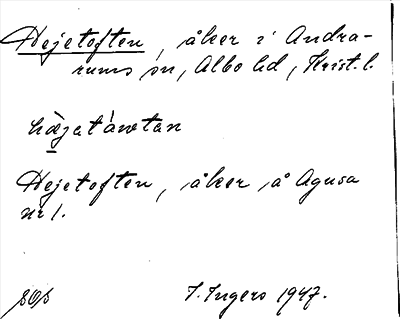 Hejetoften, åker i Andra-
rums sn, Albo hd, Krist. l.
hæjatåwtan
Hejetoften, åker å Agusa
nr 1.
SOS J. Ingers 1947.